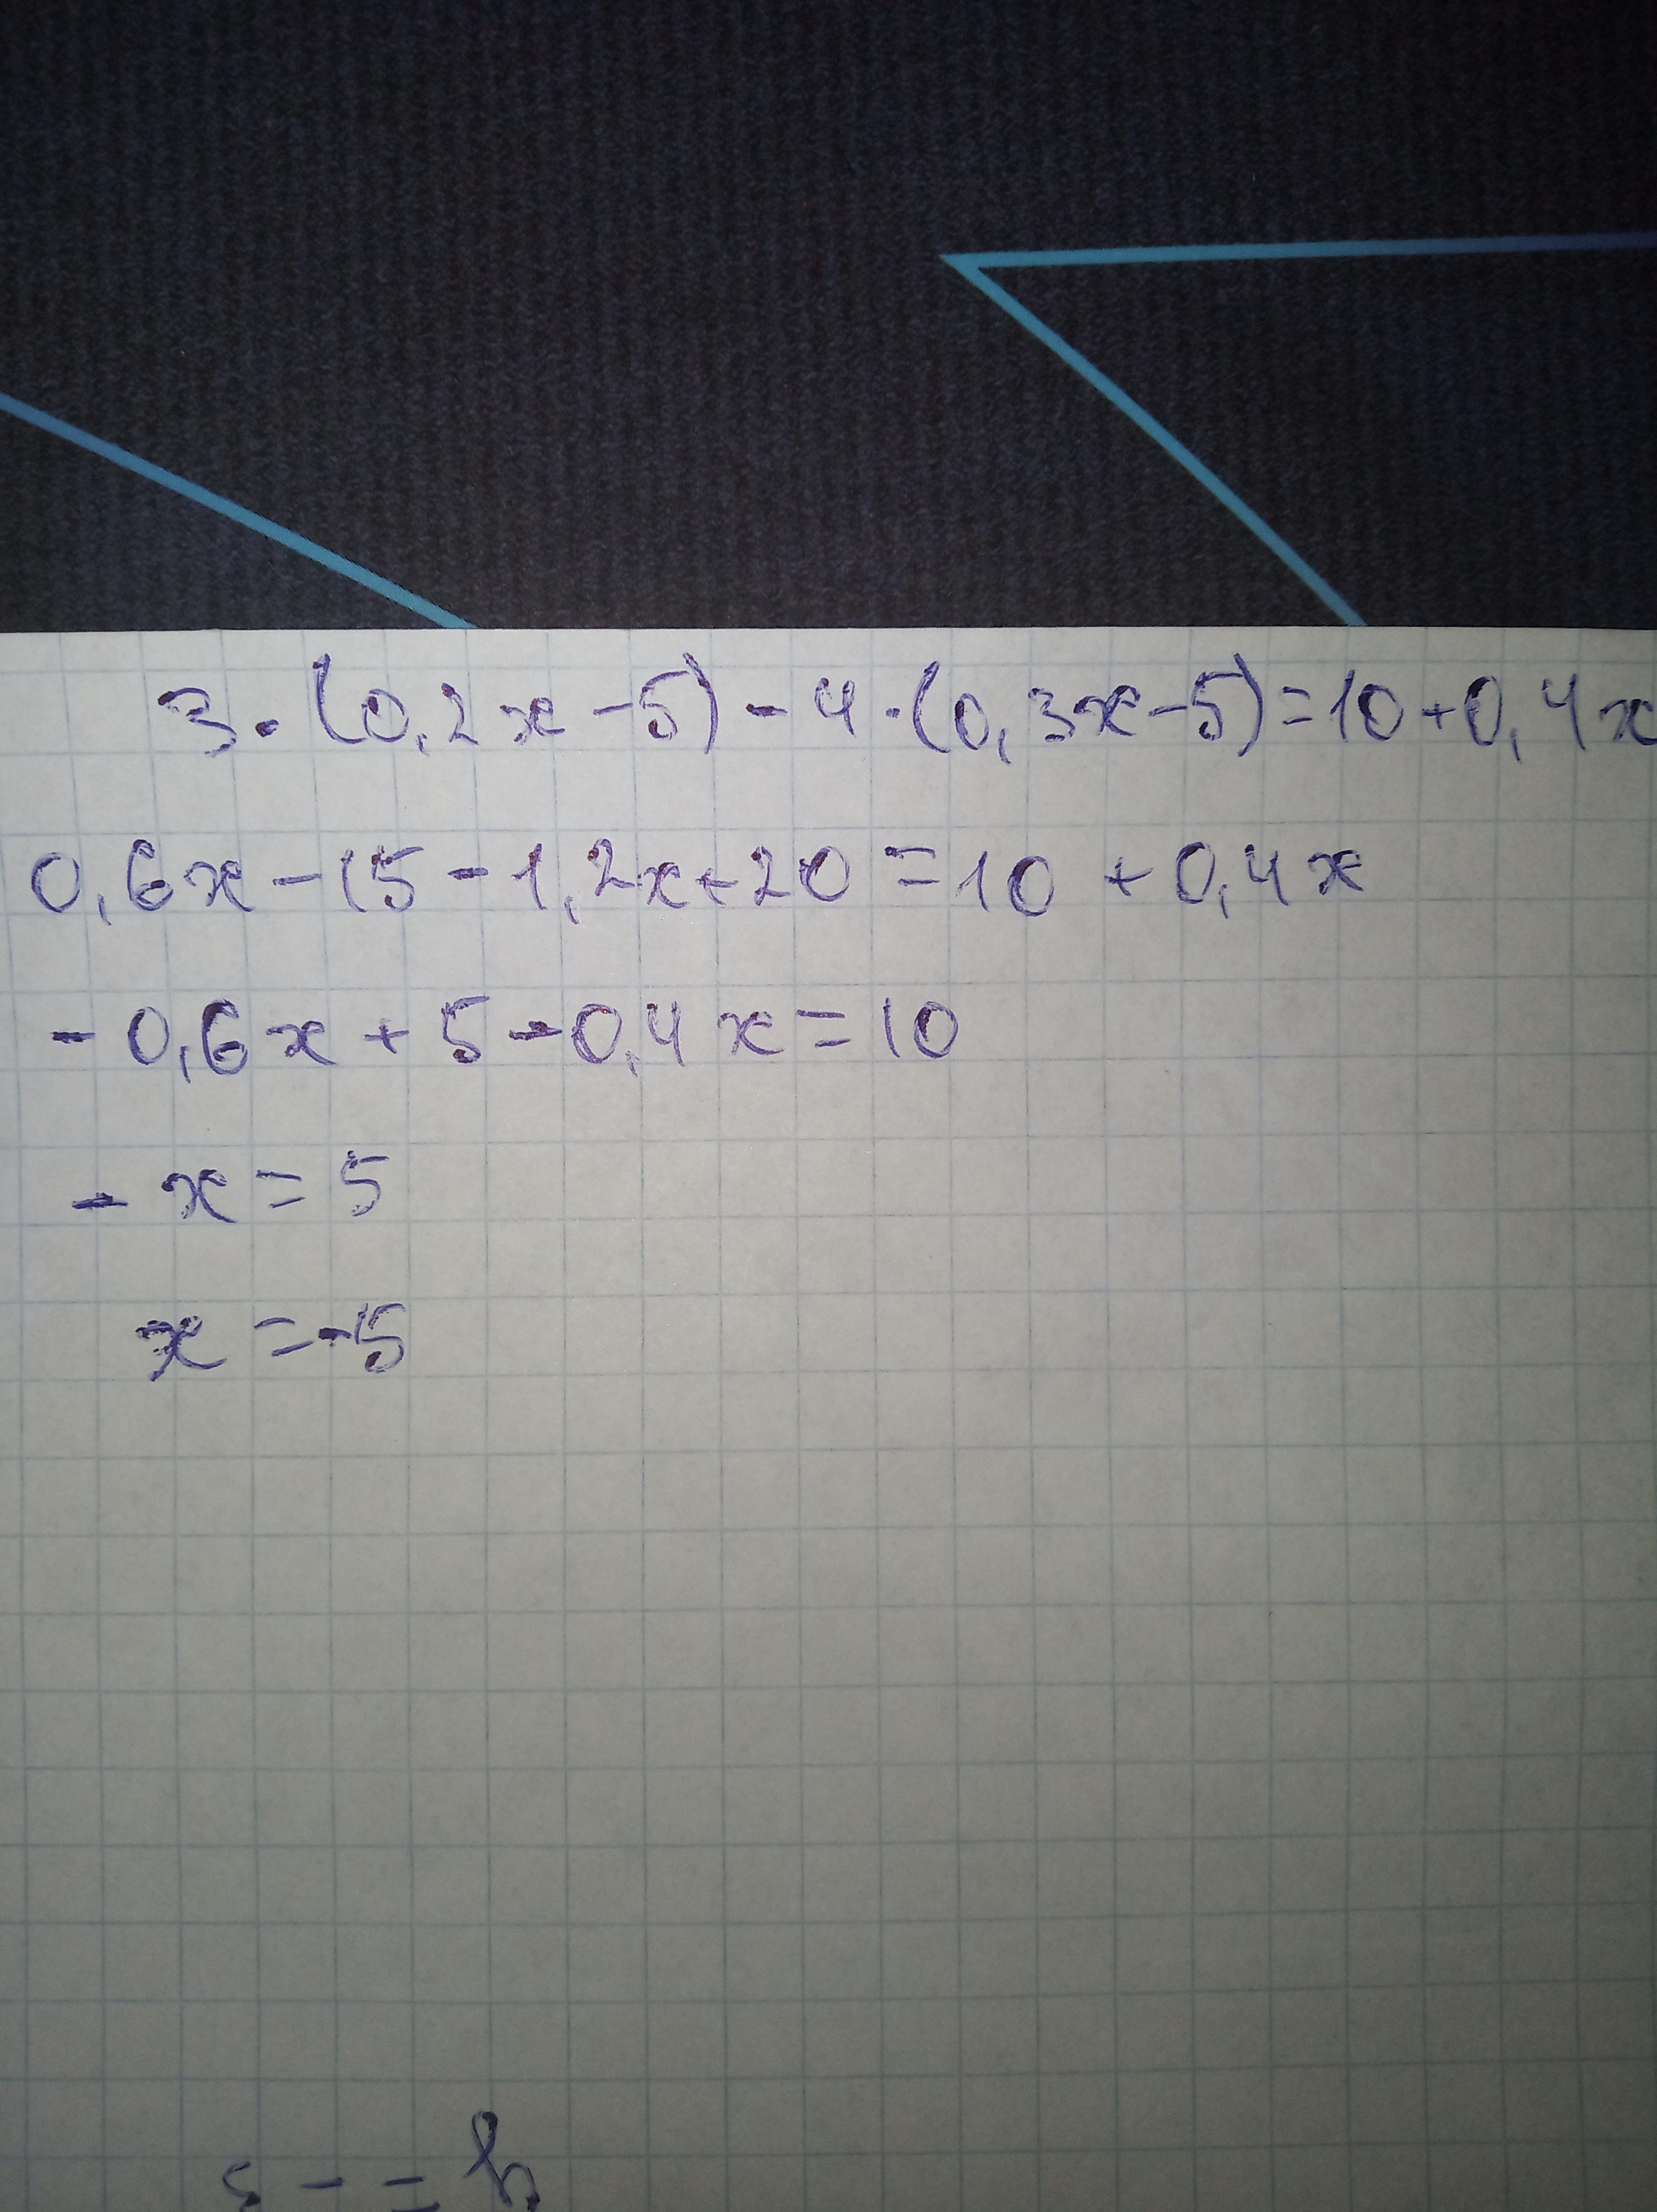 3·(0,2x-5)-4·(0,3x-5)=10+0,4x
0,6x-15-1,2x+20=10+0,4x
-0,6x+5-0,4x=10
-x=5
x=-5